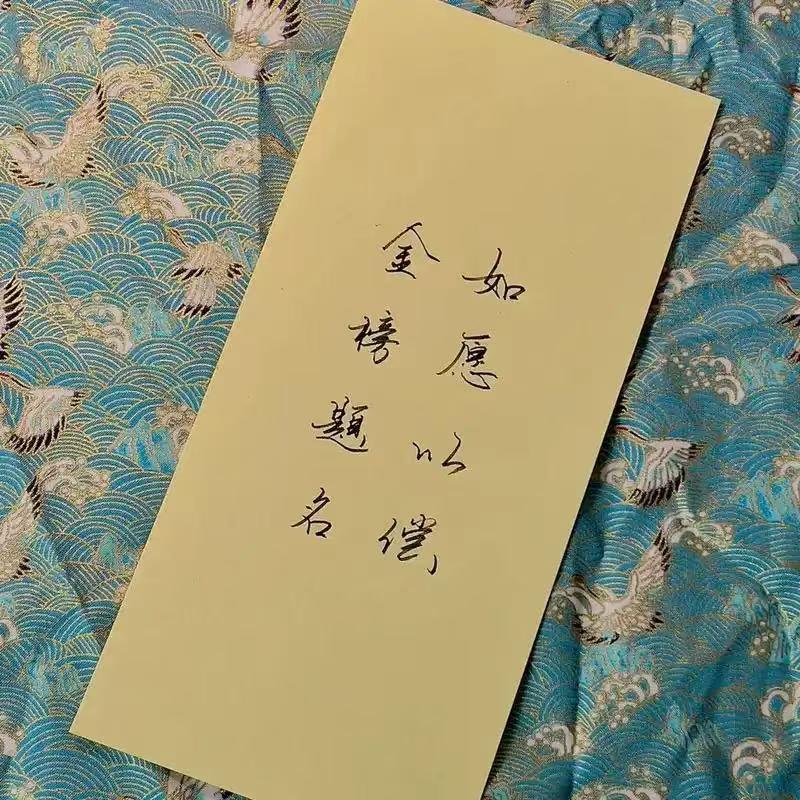 如愿以偿
金榜题名